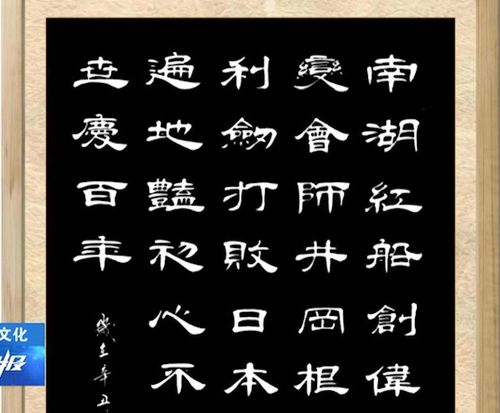 南湖紅船創偉
變會師井岡根
利劒打敗日本
遍地豔初心不
世慶百年
歲在辛丑
文化
报